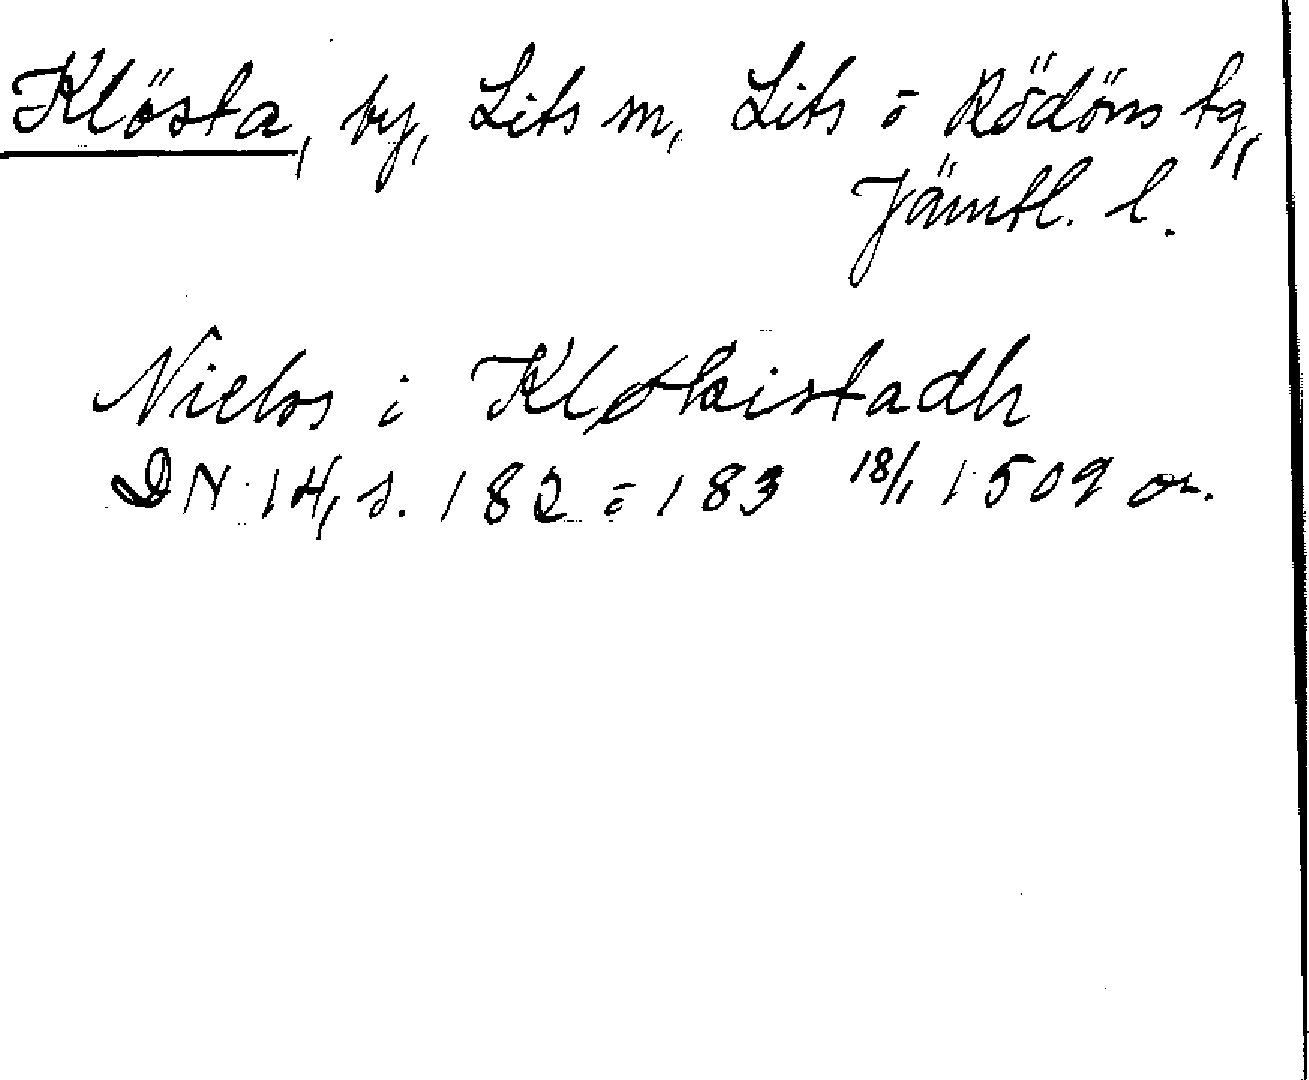 Klösta, by, Lits sn, Lits o Rödöns tg,
Jämtl. l.
Niels i
DN 14, s. 182 o 183 18/1 1509 or.